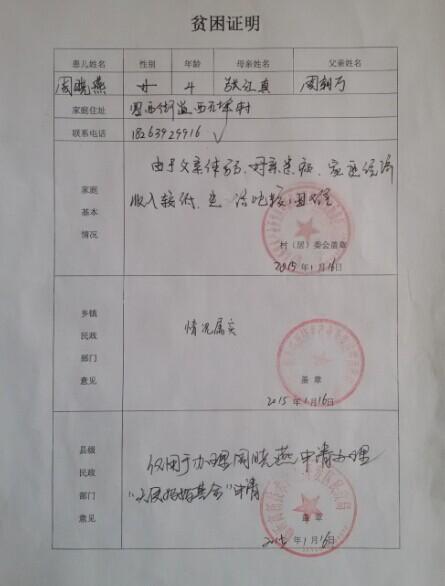 贫困证明
患儿姓名 性别 年龄 母亲姓名 父亲姓名
周晓燕 女 4 江真
家庭住址 街道西 村
联系电话 18263929916
家庭基本情况
由于父亲体弱、母亲患病、家庭经济
收入较低、生活比较困难
村(居)委会盖章
2015年1月16日
乡镇民政部门意见
情况属实
盖章
2015年1月16日
县级民政部门意见
仅用于办理周晓燕申请办理
基金”申请
盖章
2015年1月16日